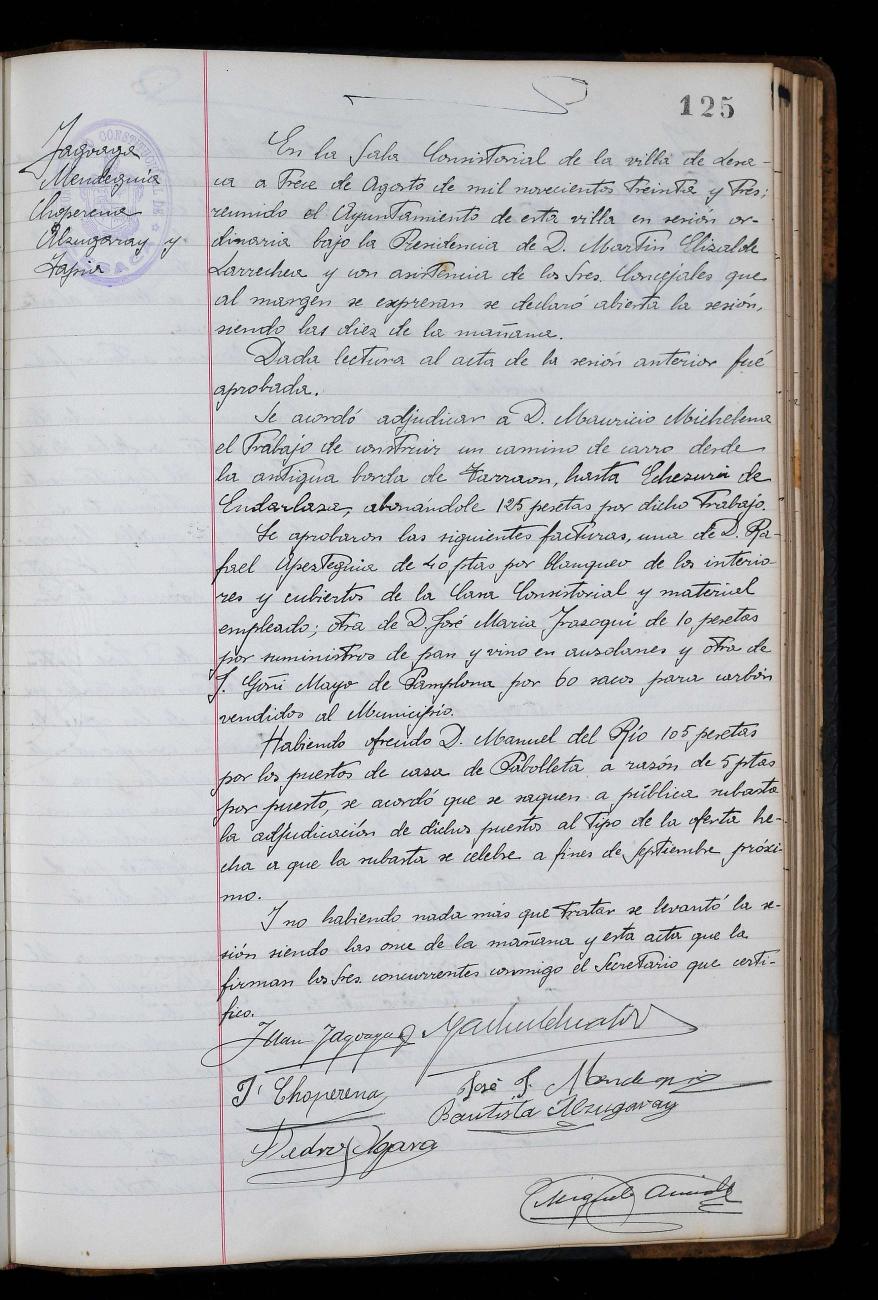 125
Jaguaga
Mendeguia
Choperena
Alzugaray y
Tapia
En la Sala Consistorial de la villa de Lesa-
ca a trece de Agosto de mil novecientos treinta y tres;
reunido el Ayuntamiento de esta villa en sesión or-
dinaria bajo la Presidencia de D. Martin Elizalde
Larrechea y con asistencia de los Sres. Concejales que
al margen se expresan se declaró abierta la sesión,
siendo las diez de la mañana.
Dada lectura al acta de la sesión anterior fué
aprobada.
Se acordó adjudicar a D. Mauricio Michelena
el trabajo de construir un camino de carro desde
la antigua borda de Tarraon, hasta Echezuria de
Endarlaza, abonándole 125 pesetas por dicho trabajo.
Se aprobaron las siguientes facturas, una de D. Ra-
fael Apezteguia de 40 ptas por blanqueo de los interio-
res y cubiertos de la Casa Consistorial y material
empleado; otra de D. José Maria Irazoqui de 10 pesetas
por suministros de pan y vino en auzolanes y otra de
J. Goñi Mayo de Pamplona por 60 sacos para carbón
vendidos al Municipio.
Habiendo ofrecido D. Manuel del Río 105 pesetas
por los puestos de caza de Pabolleta a razón de 5 ptas
por puesto, se acordó que se saquen a pública subasta
la adjudicación de dichos puestos al tipo de la oferta he-
cha a que la subasta se celebre a fines de Septiembre próxi-
mo.
Y no habiendo nada más que tratar se levantó la se-
sión siendo las once de la mañana y esta acta que la
firman los Sres. concurrentes conmigo el Secretario que certi-
fico.
Juan Jaguaga
J. Choperena
José J. Mendeguia
Bautista Alzugaray
Pedro
Miguel